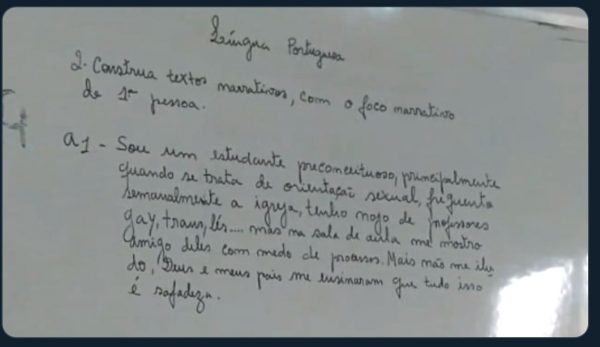 Língua Portuguesa
2- Construa textos narrativos, com o foco narrativo
de 1ª pessoa.
a1 - Sou um estudante preconceituoso, principalmente
quando se trata de orientação sexual, frequento
semanalmente a igreja, tenho nojo de professores
gay, trans, lés.... mas na sala de aula me mostro
amigo deles com medo de processos. Mais não me ilu
do, Deus e meus pais me ensinaram que tudo isso
é safadeza.